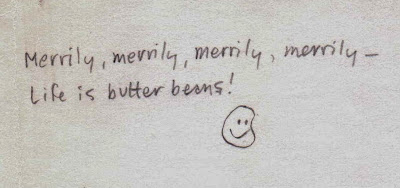 Merrily, merrily, merrily, merrily –
Life is butter beans!